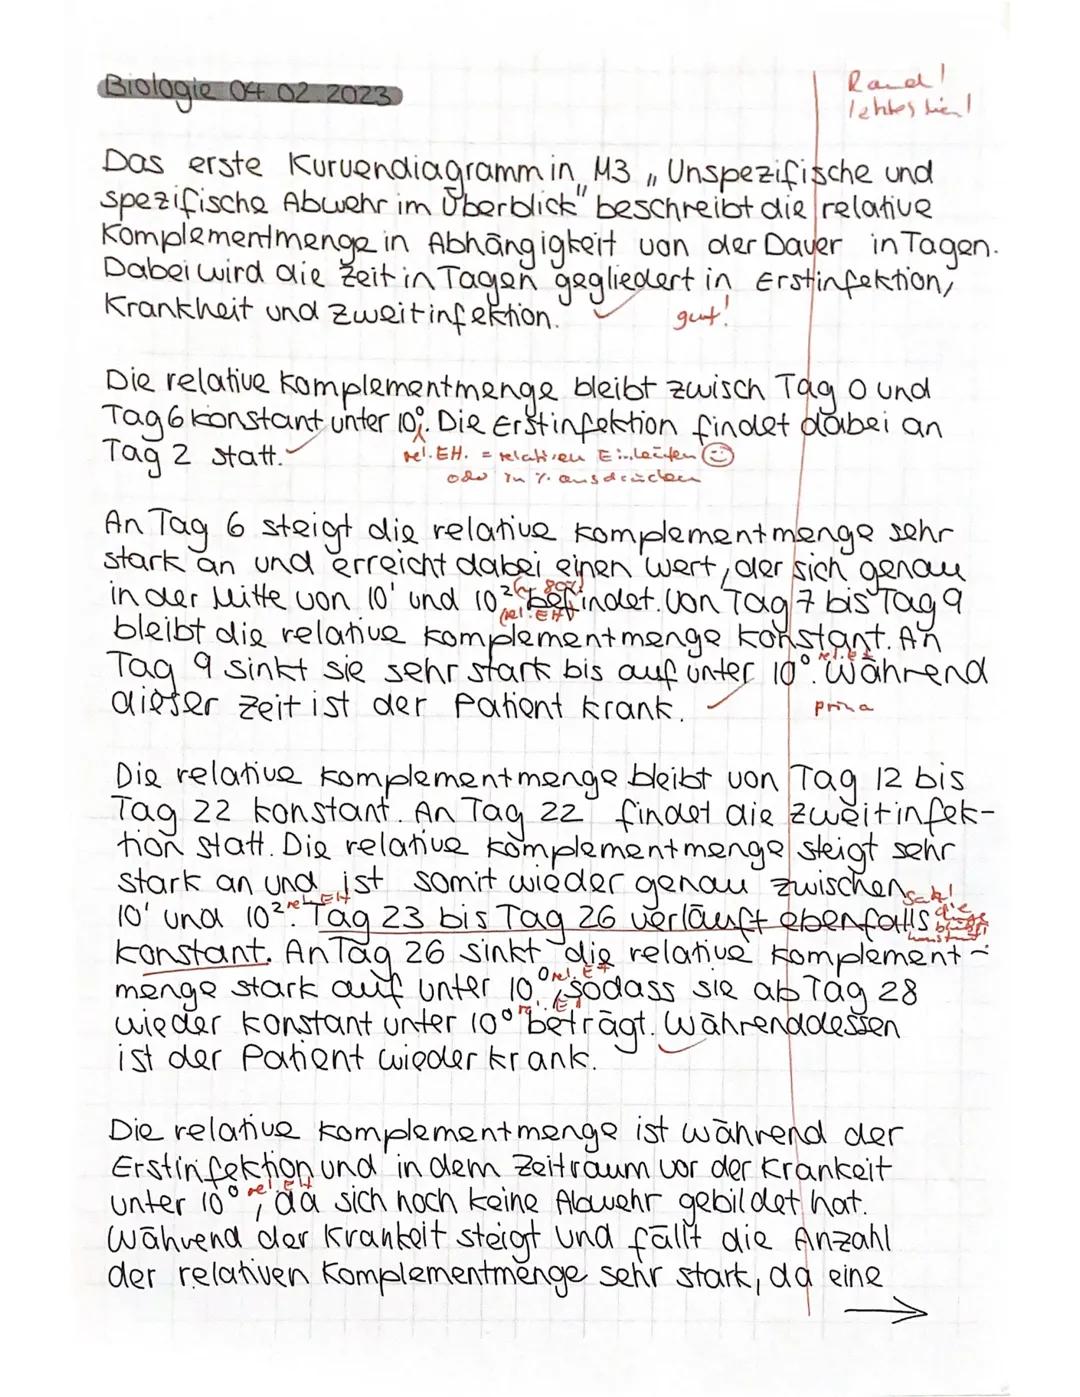 Biologie 04.02.2023
Rand!
Das erste Kurvendiagramm in M3 „Unspezifische und
spezifische Abwehr im Überblick" beschreibt die relative
Komplementmenge in Abhängigkeit von der Dauer in Tagen.
Dabei wird die Zeit in Tagen gegliedert in Erstinfektion,
Krankheit und Zweitinfektion.
gut!
Die relative Komplementmenge bleibt zwisch Tag 0 und
Tag 6 konstant unter 10⁰. Die Erstinfektion findet dabei an
Tag 2 statt.
rel. EH. = relativen Einheiten ☺
oder in % ausdrücken
An Tag 6 steigt die relative Komplementmenge sehr
stark an und erreicht dabei einen Wert, der sich genau
in der Mitte von 10¹ und 10² befindet. Von Tag 7 bis Tag 9
rel. EH
bleibt die relative Komplementmenge konstant. An
Tag 9 sinkt sie sehr stark bis auf unter 10⁰. Während
dieser Zeit ist der Patient krank.
prima
Die relative Komplementmenge bleibt von Tag 12 bis
Tag 22 konstant. An Tag 22 findet die Zweitinfek-
tion statt. Die relative Komplementmenge steigt sehr
stark an und ist somit wieder genau zwischen
rel. EH
Satz!
10¹ und 10². Tag 23 bis Tag 26 verläuft ebenfalls
konstant. An Tag 26 sinkt die relative Komplement-
menge stark auf unter 10⁰, sodass sie ab Tag 28
wieder konstant unter 10⁰ beträgt. Währenddessen
ist der Patient wieder krank.
Die relative Komplementmenge ist während der
Erstinfektion und in dem Zeitraum vor der Krankeit
unter 10⁰ rel. EH, da sich noch keine Abwehr gebildet hat.
Während der Krankeit steigt und fällt die Anzahl
der relativen Komplementmenge sehr stark, da eine